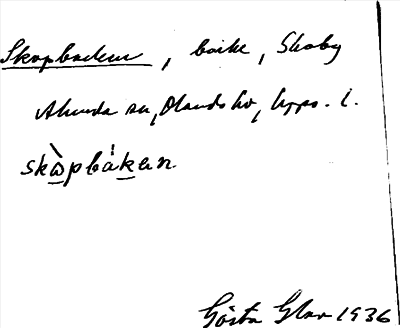 Skopbacken, backe, Skoby
Alunda sn, Olands hd, Upps. l.
skò̱pbák̲en.
Gösta Glav 1936